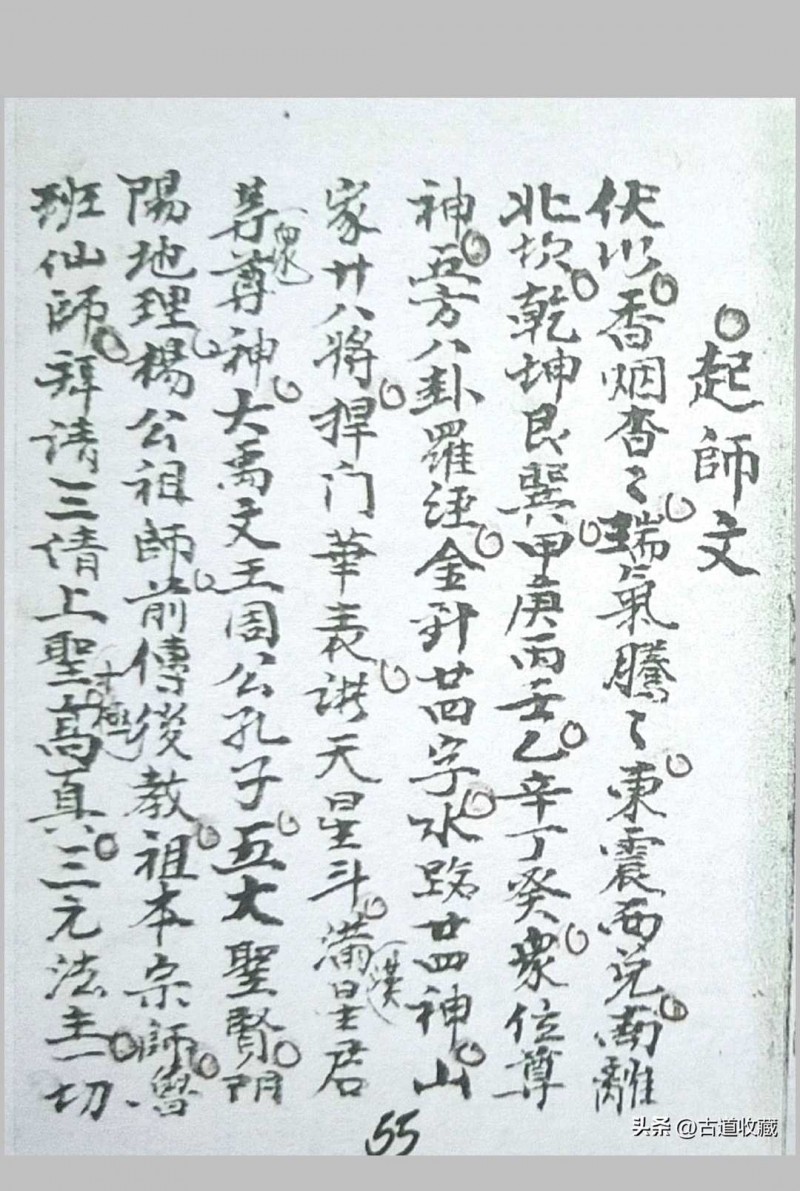 起師文
伏以香烟杳々瑞氣騰々東震西兌南離
北坎乾坤艮巽甲庚丙壬乙辛丁癸衆位尊
神五方八卦羅涇金針廿四字水路廿四神山
家廿八將捍门華表洪天星斗滿漢星君
等尊神大禹文王周公孔子五大聖賢阴
陽地理楊公祖師前傳後教祖本宗師魯
班仙師拜请三清上聖十極高真三元法主一切
55
头条 @古道收藏